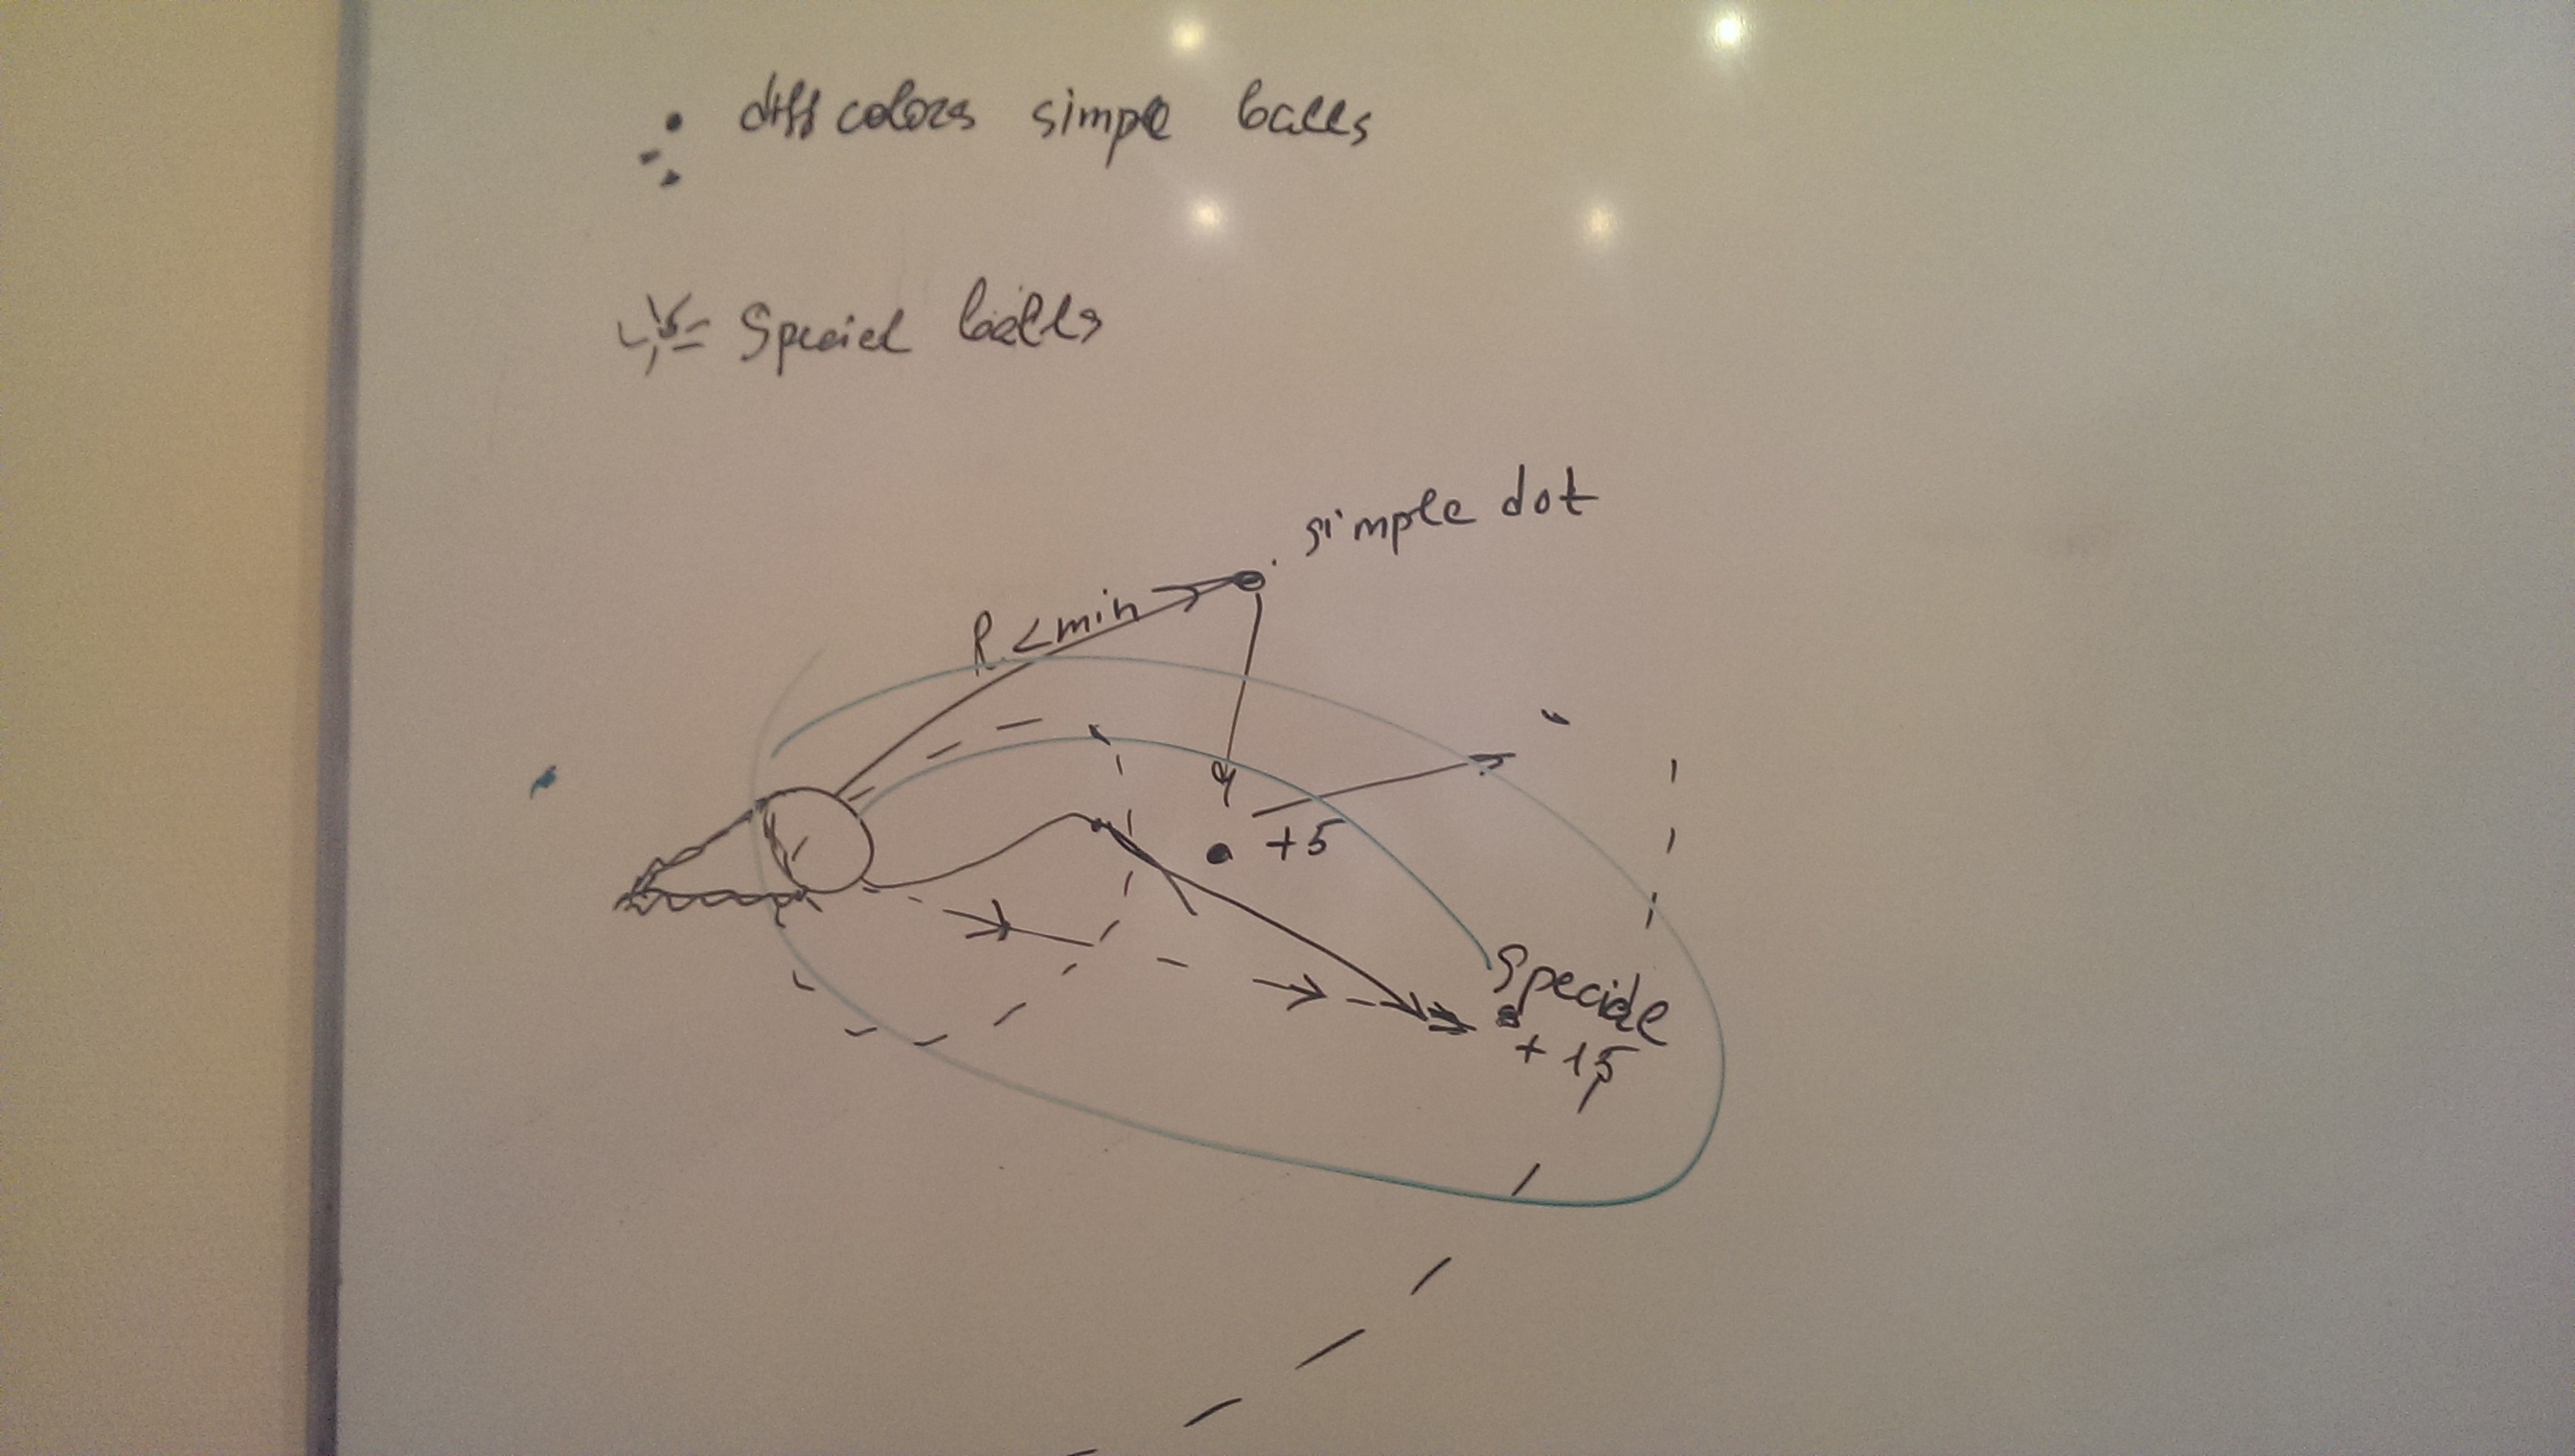 diff colors simple balls
Special balls
simple dot
R < min
+5
Special
+15